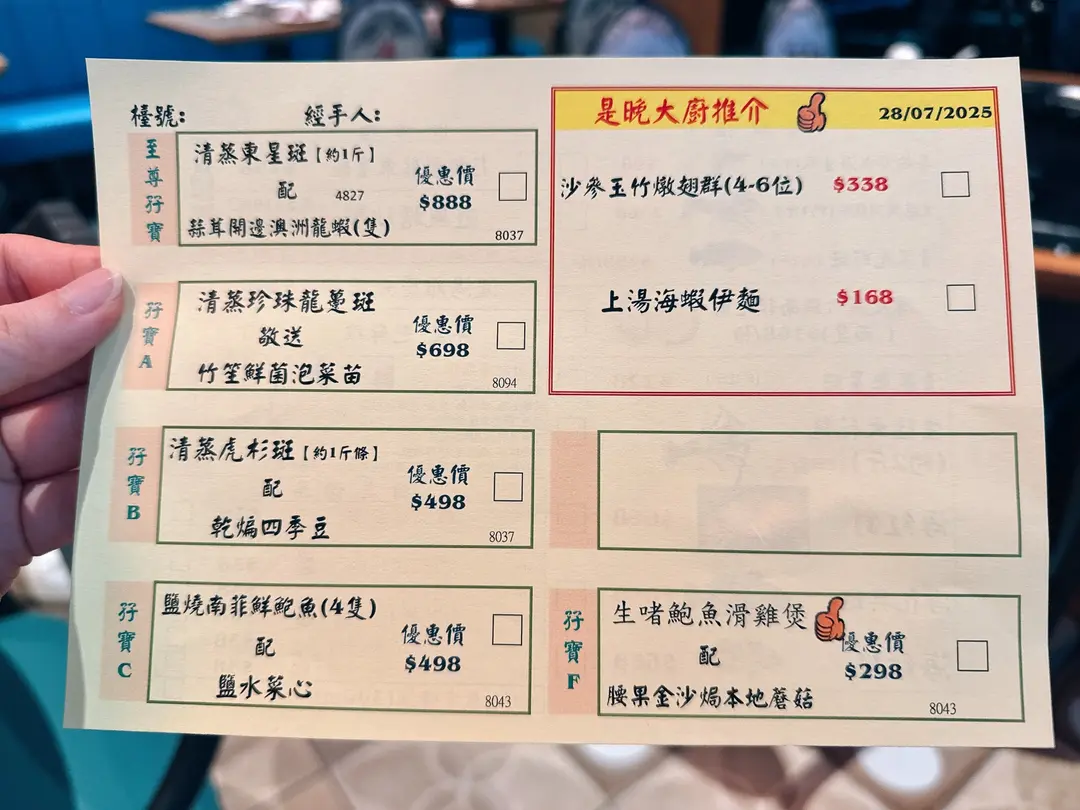 檯號:
經手人:
至尊孖寶
清蒸東星斑【約1斤】
配 4827
蒜茸開邊澳洲龍蝦(隻)
優惠價
$888
8037
孖寶A
清蒸珍珠龍躉斑
敬送
竹笙鮮菌泡菜苗
優惠價
$698
8094
孖寶B
清蒸虎杉斑【約1斤條】
配
乾煸四季豆
優惠價
$498
8037
孖寶C
鹽燒南菲鮮鮑魚(4隻)
配
鹽水菜心
優惠價
$498
8043
是晚大廚推介
28/07/2025
沙參玉竹燉翅群(4-6位) $338
上湯海蝦伊麵 $168
孖寶F
生啫鮑魚滑雞煲
配
腰果金沙焗本地蘑菇
優惠價
$298
8043